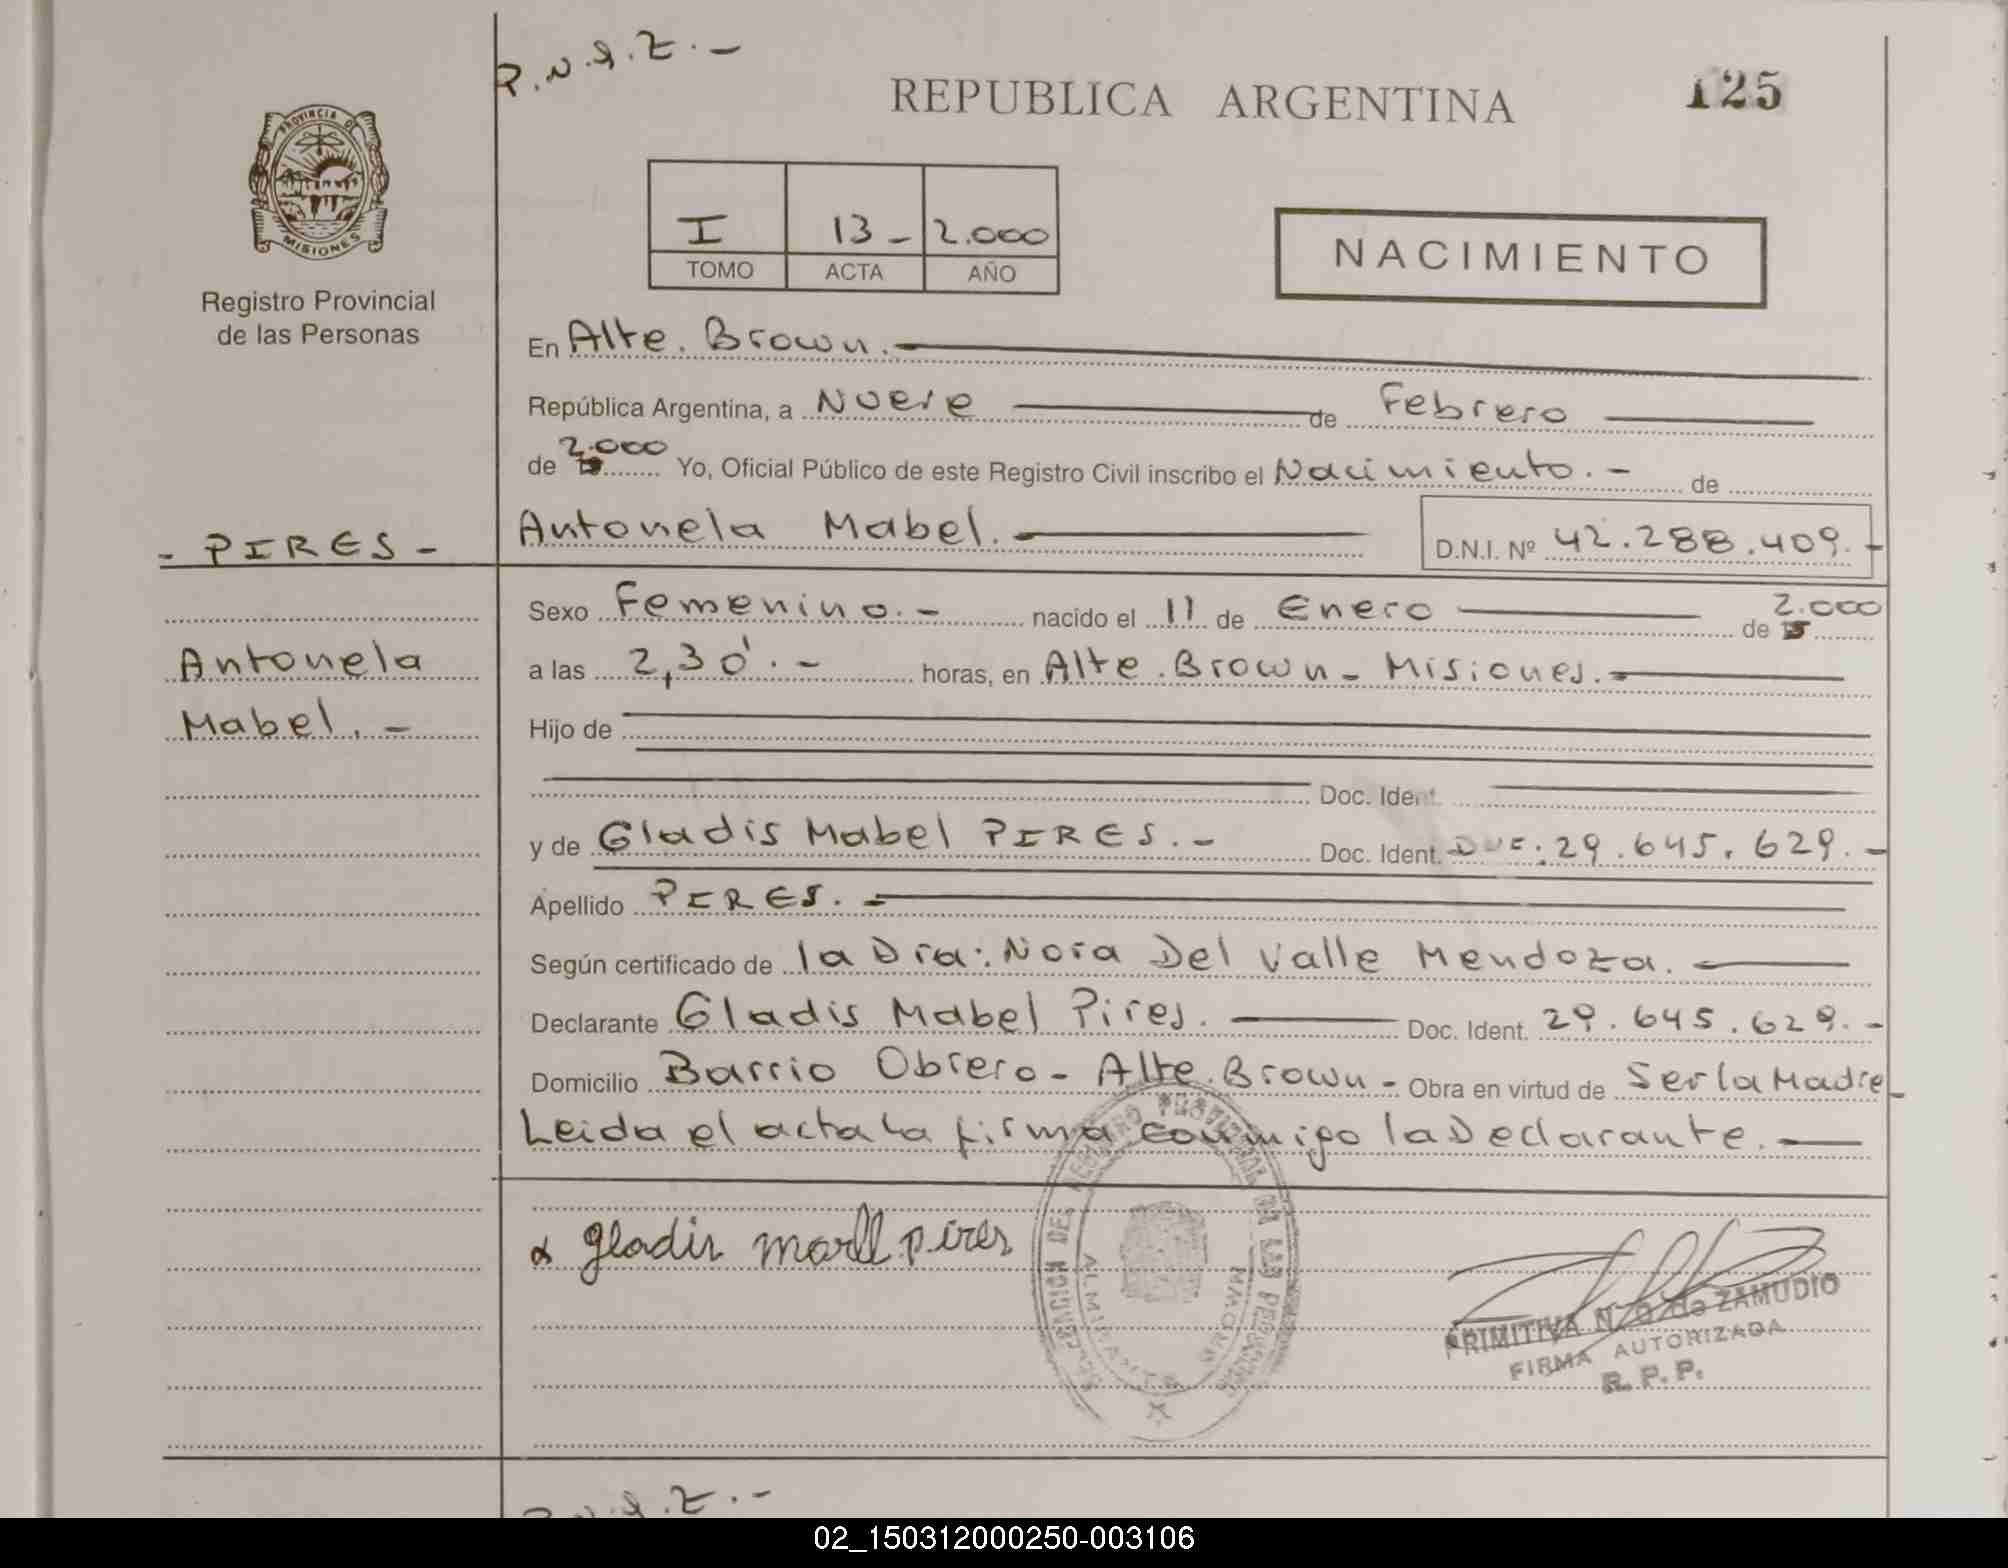 P.N.G.Z.-
REPUBLICA ARGENTINA
125
PROVINCIA DE
MISIONES
Registro Provincial
de las Personas
I 13- 2.000
TOMO ACTA AÑO
NACIMIENTO
En Alte. Brown.
República Argentina, a Nueve de Febrero
de 2.000 Yo, Oficial Público de este Registro Civil inscribo el Nacimiento.- de
- PIRES -
Antonela Mabel. D.N.I. Nº 42.288.409.-
Sexo Femenino.- nacido el 11 de Enero de 2.000
Antonela
Mabel.-
a las 2,30'.- horas, en Alte. Brown - Misiones.-
Hijo de
Doc. Ident.
y de Gladis Mabel PIRES.- Doc. Ident. 29.645.629.-
Apellido PIRES.-
Según certificado de la Dra: Nora Del Valle Mendoza.
Declarante Gladis Mabel Pires. Doc. Ident. 29.645.629.-
Domicilio Barrio Obrero - Alte. Brown - Obra en virtud de Ser la Madre
Leida el acta la firma conmigo la Declarante.
gladis mabll pires
ALMIRANTE BROWN
PRIMITIVA N. G. de ZAMUDIO
FIRMA AUTORIZADA
R. P. P.
02_150312000250-003106